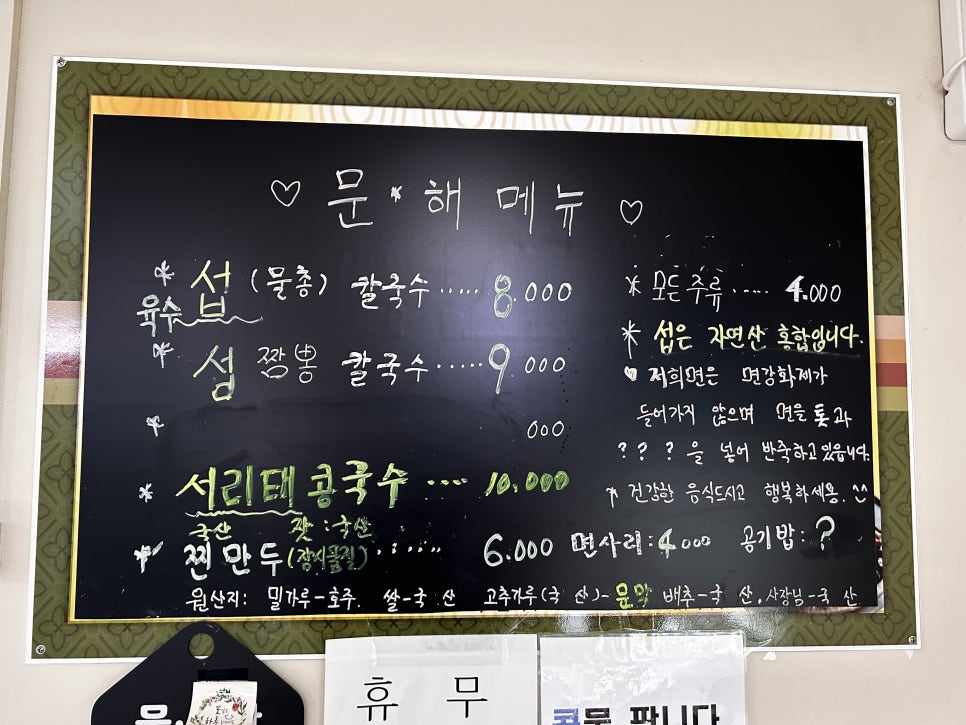 ♡ 문 * 해 메뉴 ♡
* 섭 (물총) 칼국수 ..... 8.000
육수
* 섭 짬뽕 칼국수 ..... 9.000
* 000
서리태 콩국수 .... 10.000
*
국산 잣:국산
* 찐만두(잠시품절) ...... 6.000 면사리:4.000 공기밥:?
원산지: 밀가루-호주. 쌀-국산 고추가루(국산)-문막 배추-국산, 사장님-국산
* 모든 주류 ..... 4.000
* 섭은 자연산 홍합입니다.
♥ 저희면은 면강화제가
들어가지 않으며 면을 톳과
? ? ? 을 넣어 반죽하고있읍니다.
* 건강한 음식드시고 행복하세용. ^^
휴무
콩물 팝니다